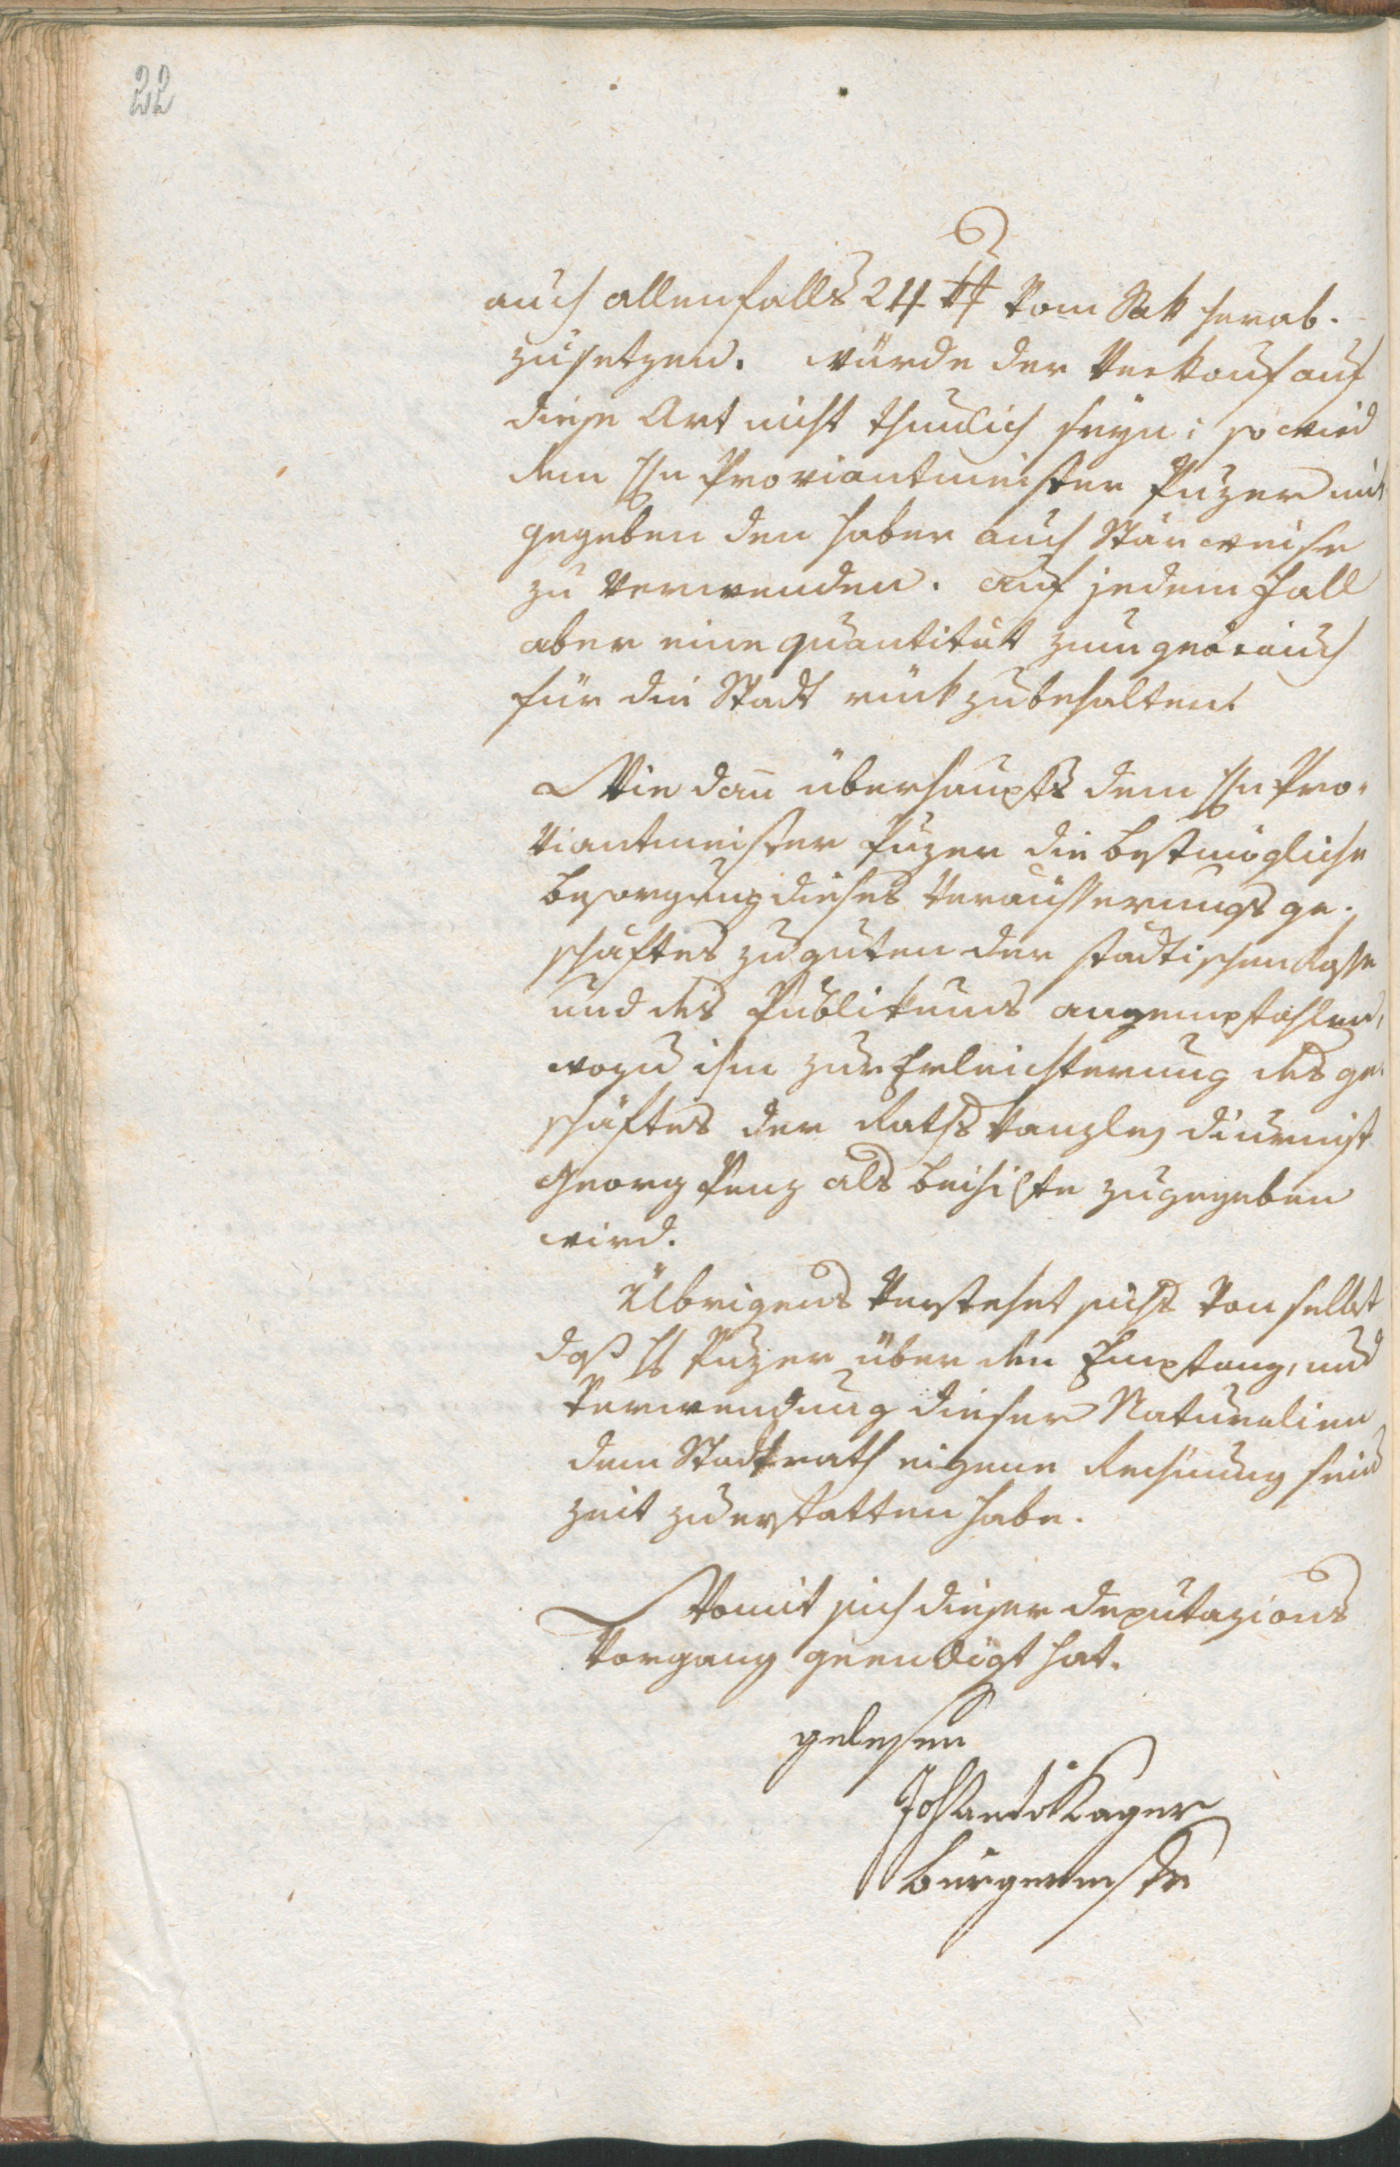 22
auch allenfalls 24 xr vom Sak herab-
zusetzen. würde der Verkauf auf
diese Art nicht thunlich seyn: so wird
dem Hn Proviantmeister Puzer mit
gegeben den Haber auch Stär weise
zu verwenden. auf jedem Fall
aber eine quantität zum gebrauch
für die Stadt rückzubehalten.
Wie dan überhaupts dem Hn Pro-
viantmeister Puzer die bestmögliche
besorgung dieses Veräusserungs ge-
schäftes zu guten der städtischen Kasse
und des Publikums angempfohlen,
wozu ihm zur Erleichterung des ge-
schäftes der Raths Kanzley diurnist
Georg Penz als beihilfe zugegeben
wird.
Übrigens verstehet sichs von selbst
daß H Puzer über den Empfang, und
Verwendung dieser Naturalien
dem Stadtrath eigene Rechnung seiner
zeit zu erstatten habe.
Womit sich dieser deputazions
Vorgang geendigt hat.
gelesen
Kager
burgermeister